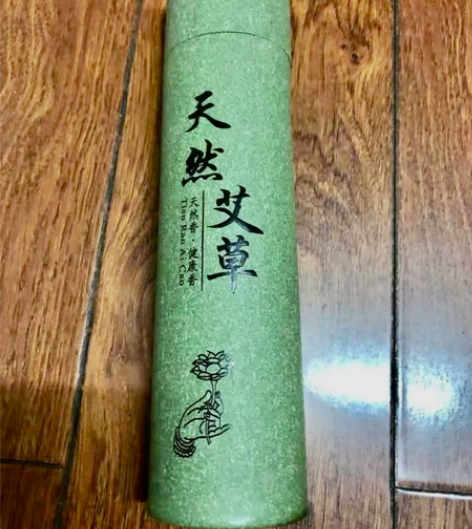 天然
艾草
天然香·健康香
Tian Ran Ai Cao